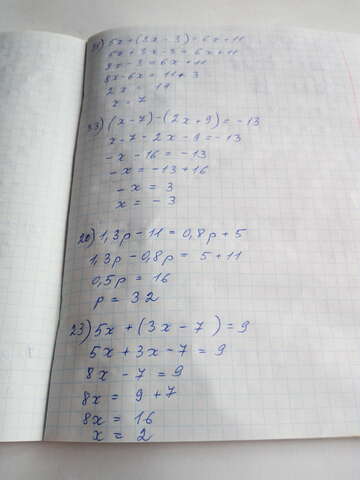 31) 5x+(3x-3)=6x+11
5x+3x-3=6x+11
8x-3=6x+11
8x-6x=11+3
2x=14
x=7
33) (x-7)-(2x+9)=-13
x-7-2x-9=-13
-x-16=-13
-x=-13+16
-x=3
x=-3
20) 1,3p-11=0,8p+5
1,3p-0,8p=5+11
0,5p=16
p=32
23) 5x+(3x-7)=9
5x+3x-7=9
8x-7=9
8x=9+7
8x=16
x=2